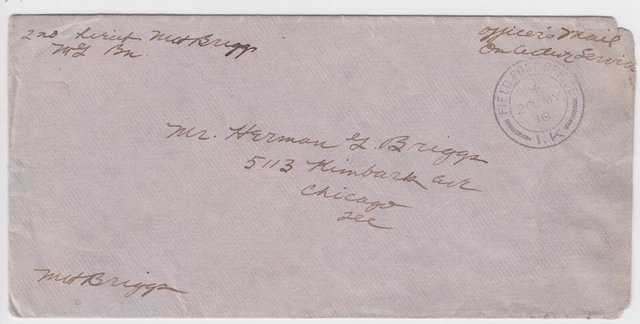 2nd Lieut MH Briggs
MG Bn.
Officer's Mail
On Active Service
FIELD POST OFFICE
20
18
T.K
Mr. Herman G. Briggs
5113 Kimbark ave
Chicago
Ill
MH Briggs